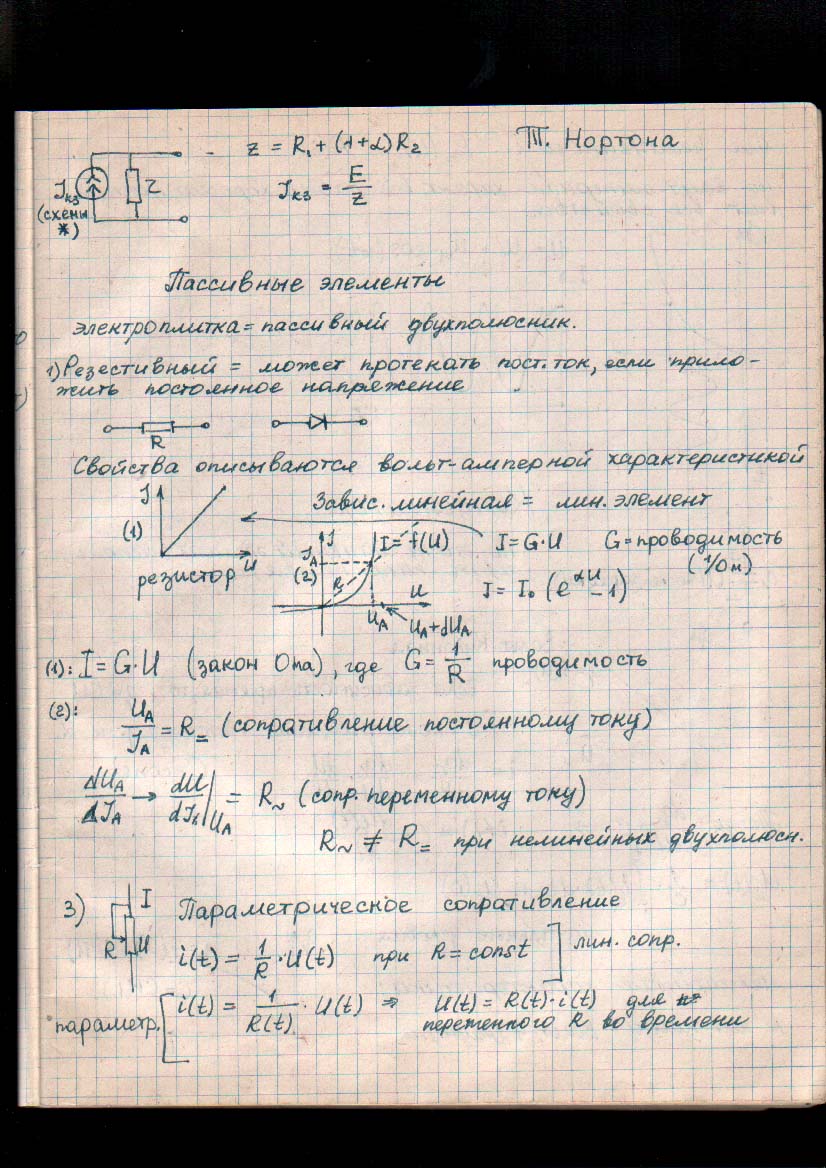 z = R₁ + (1+α)R₂ Т. Нортона
Jкз Z Jкз = E/Z
(схемы
*)
Пассивные элементы
электроплитка = пассивный двухполюсник.
1) Резестивный = может протекать пост. ток, если прило-
жить постоянное напряжение
R
Свойства описываются вольт-амперной характеристикой
J Завис. линейная = лин. элемент
(1) J I = f(U) I = G·U G = проводимость
JA (1/Ом)
(2)
резистор U R U J = I₀ (e^αU − 1)
UA UA+dUA
(1): I = G·U (закон Ома), где G = 1/R проводимость
(2): UA/JA = R= (сопративление постоянному току)
dUA/dJA → dU/dJA|UA = R~ (сопр. переменному току)
R~ ≠ R= при нелинейных двухполюсн.
3) I Параметрическое сопративление
R U i(t) = 1/R · U(t) при R = const ] лин. сопр.
параметр. [ i(t) = 1/R(t) · U(t) ⇒ U(t) = R(t)·i(t) для
переменного R во времени